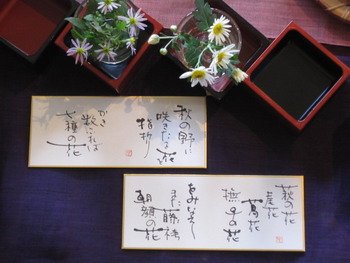 秋の野に
咲きたる花
指折
かき
数ふれば
七種の花
萩の花
尾花
葛花
撫子の花
をみなへし
また藤袴
朝顔の花